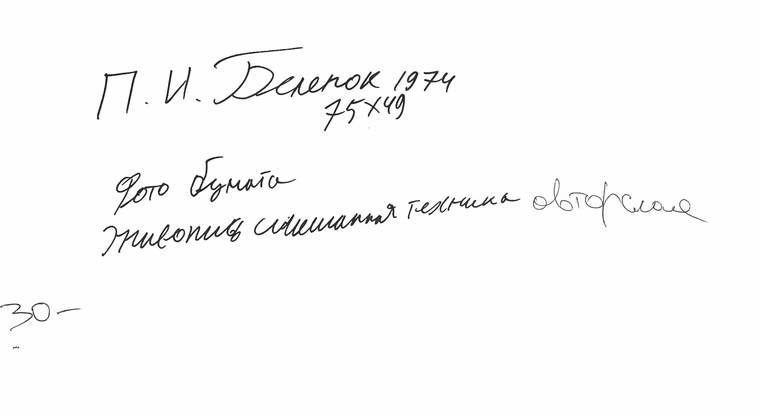 П. И. Беленок 1974
75x49
Фото бумага
Живопись смешанная техника авторская
30-